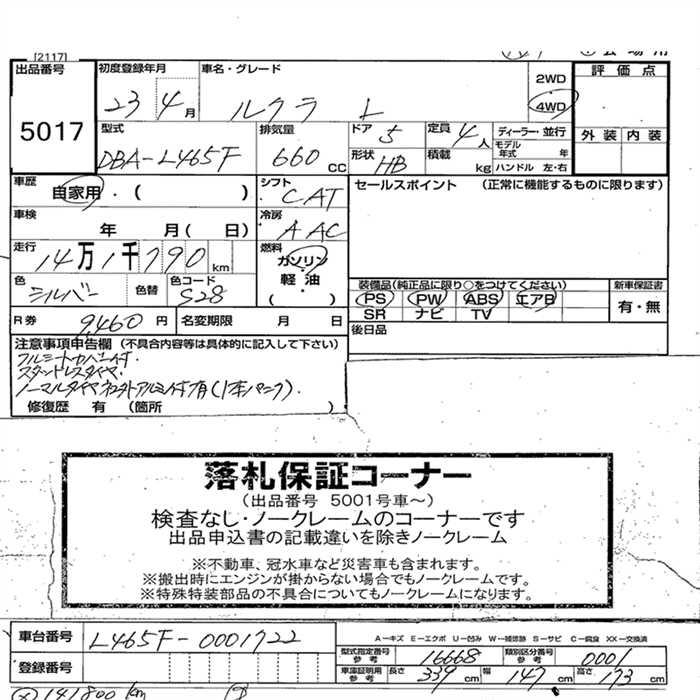 [2117]
出品番号 初度登録年月 車名・グレード 評価点
5017
23 4月 ルクラ L
2WD
4WD
外装 内装
型式 排気量 ドア 定員 ディーラー・並行
DBA-L465F 660CC 5 4人
モデル年式 年
形状 HB 積載 kg ハンドル 左・右
車歴 自家用・( ) シフト CAT セールスポイント (正常に機能するものに限ります)
車検 年 月(日) 冷房 AAC
走行 14万1千790km 燃料 ガソリン
軽油
( )
色 シルバー 色替 色コード S28
装備品(純正品に限り○をつけてください) 新車保証書
PS PW ABS エアB 有・無
SR ナビ TV
R券 9,460円 名変期限 月 日 後日品
注意事項申告欄 (不具合内容等は具体的に記入して下さい)
フルシートカバー付・
スタットレスタイヤ・
修復歴 有 (箇所 )
落札保証コーナー
(出品番号 5001号車～)
検査なし・ノークレームのコーナーです
出品申込書の記載違いを除きノークレーム
※不動車、冠水車など災害車も含まれます。
※搬出時にエンジンが掛からない場合でもノークレームです。
※特殊特装部品の不具合についてもノークレームになります。
車台番号 L465F-0001722
A－キズ E－エクボ U－凹み W－補修跡 S－サビ C－腐食 XX－交換済
型式指定番号 参考 16668 類別区分番号 参考 0001
登録番号 車庫証明用 参考 長さ 339cm 幅 147cm 高さ 173cm
141800km